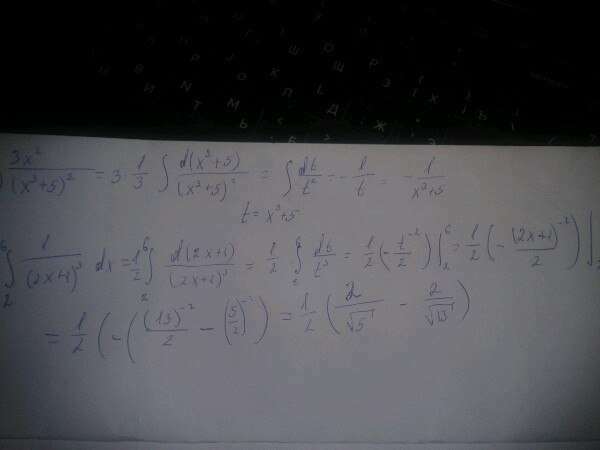 3x² / (x³+5)² = 3 · 1/3 ∫ d(x³+5) / (x³+5)² = ∫ dt/t² = - 1/t = - 1/(x³+5)
t = x³+5
∫₂⁶ 1/(2x+1)³ dx = 1/2 ∫₂⁶ d(2x+1)/(2x+1)³ = 1/2 ∫ dt/t³ = 1/2 (- t⁻²/2) |₂⁶ = 1/2 (- (2x+1)⁻²/2) |
= 1/2 (-( (13)⁻²/2 - (5/2)⁻² ) = 1/2 ( 2/√5 - 2/√13 )